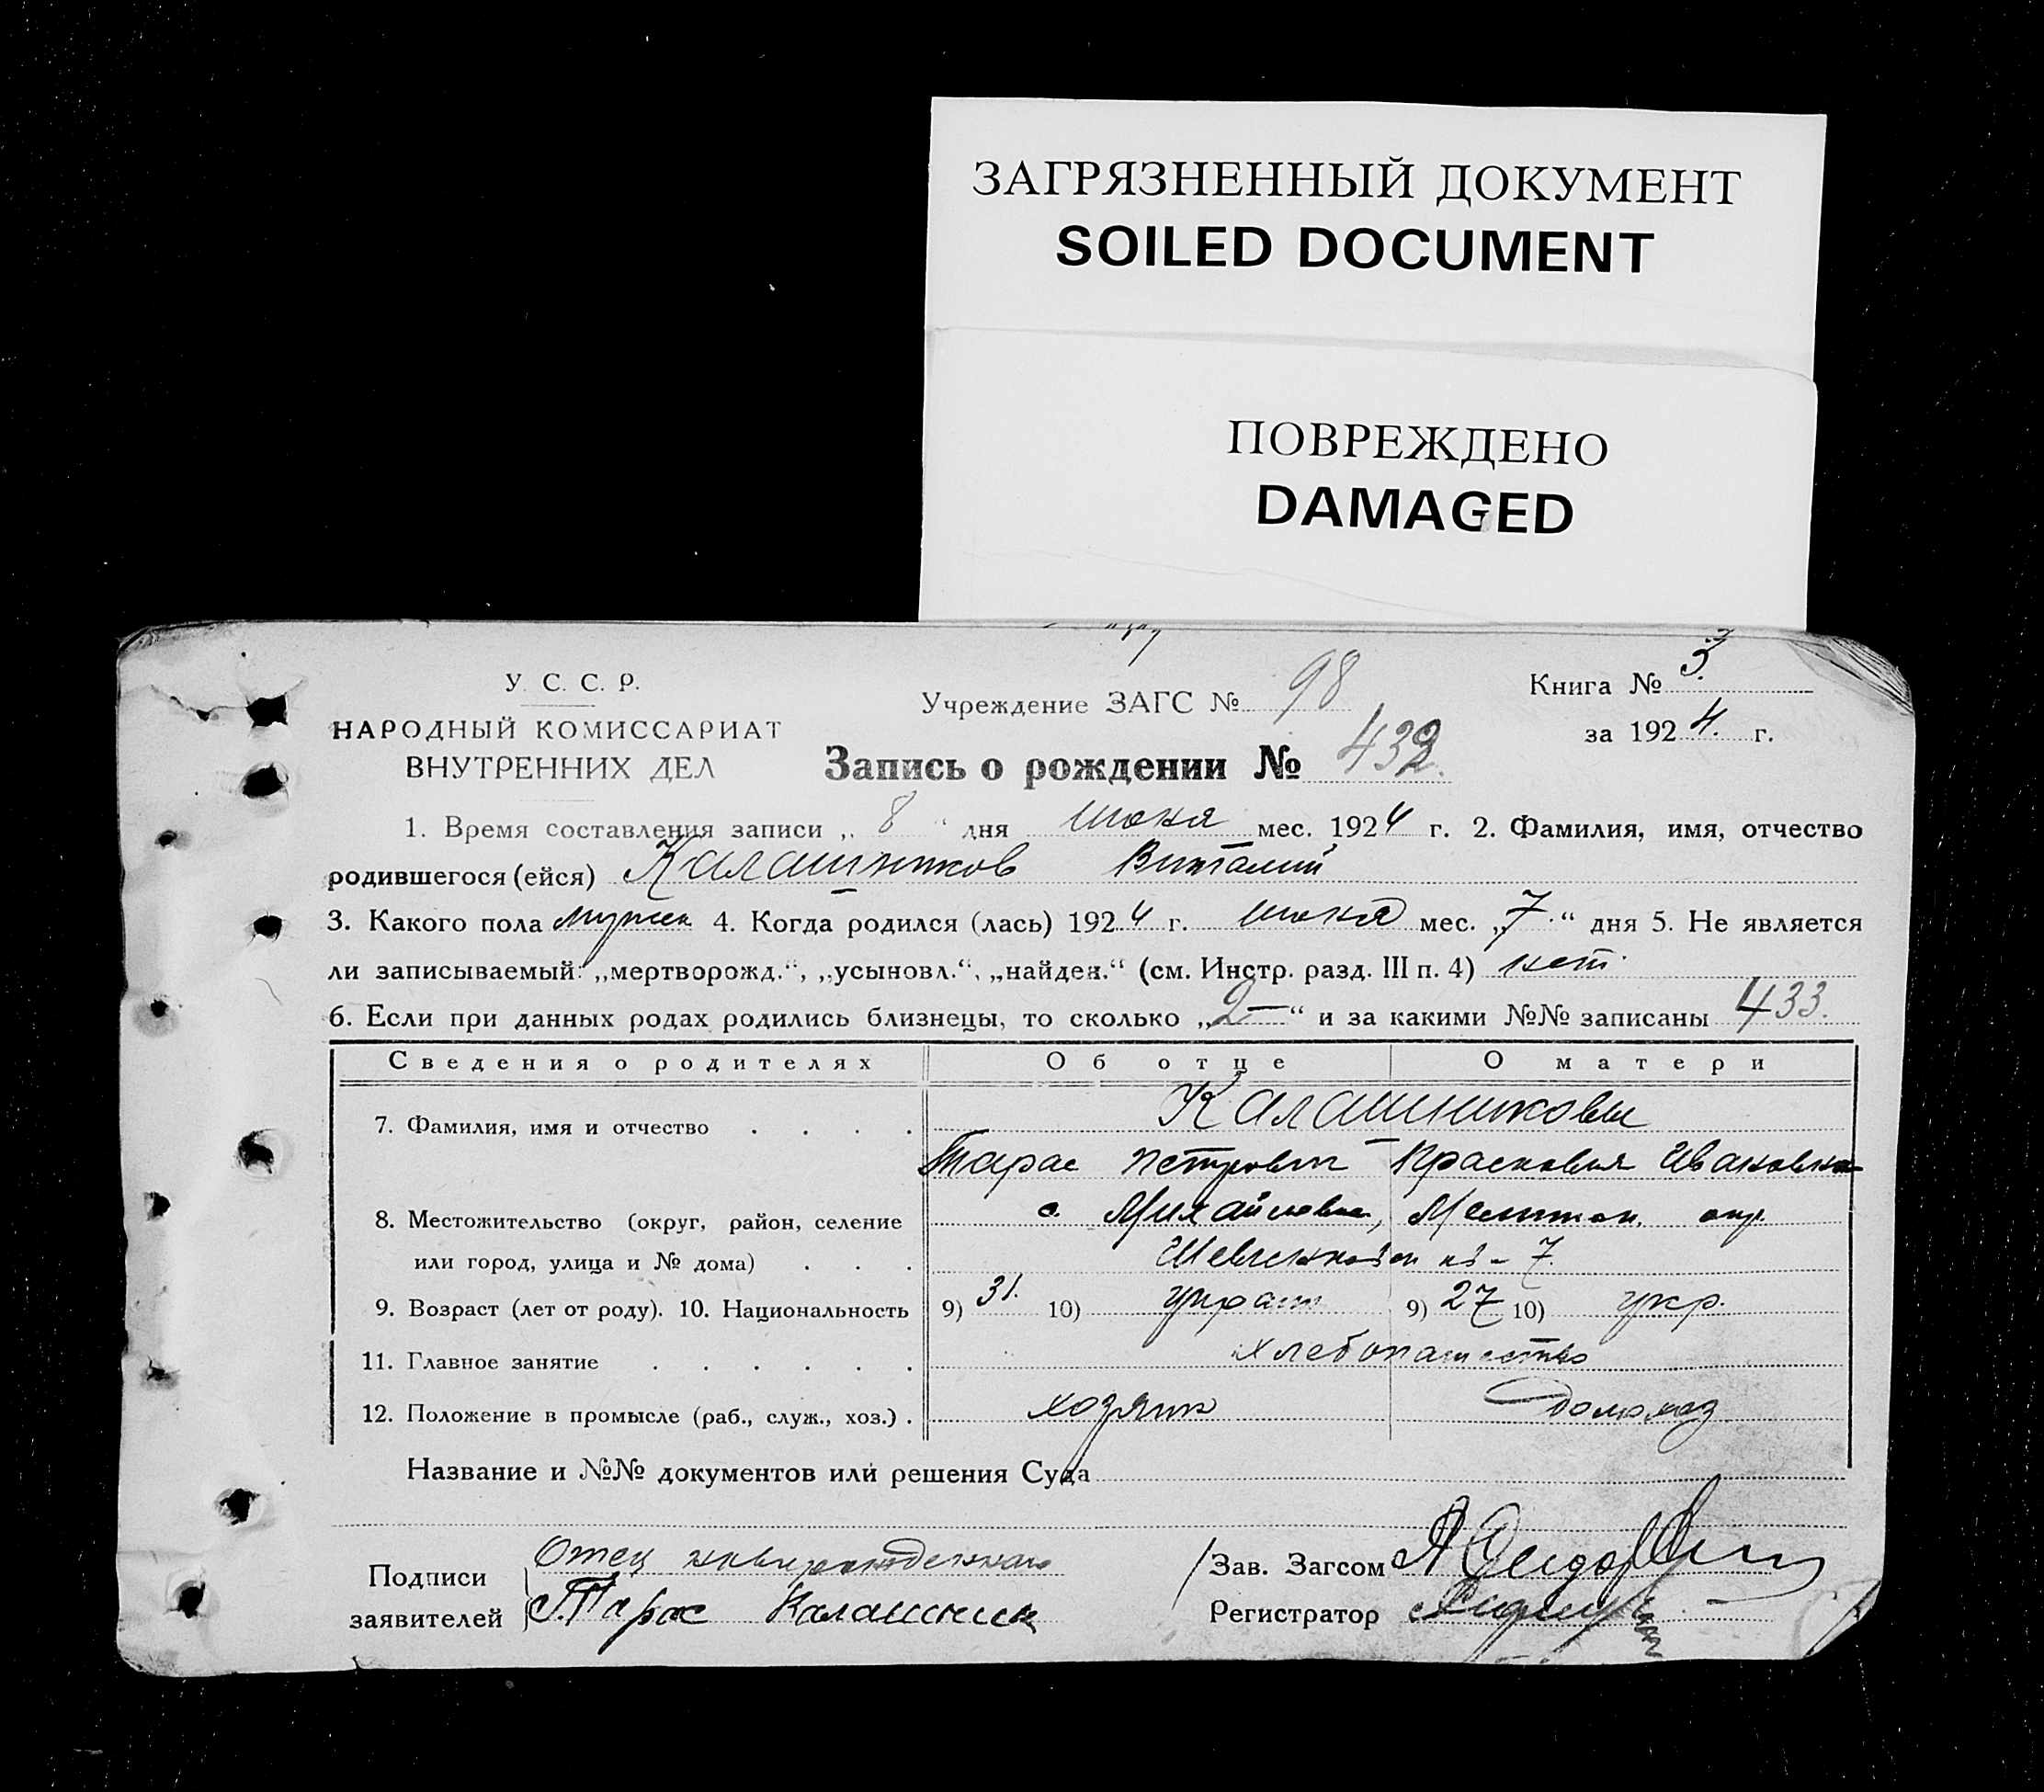 ЗАГРЯЗНЕННЫЙ ДОКУМЕНТ
SOILED DOCUMENT
ПОВРЕЖДЕНО
DAMAGED
У. С. С. Р.
НАРОДНЫЙ КОМИССАРИАТ
ВНУТРЕННИХ ДЕЛ
Учреждение ЗАГС № 98
Книга № 3
за 1924. г.
Запись о рождении № 432.
1. Время составления записи „ 8 “ дня июня мес. 1924 г. 2. Фамилия, имя, отчество
родившегося (ейся) Калашников Виталий
3. Какого пола мужск 4. Когда родился (лась) 1924 г. июня мес. „7“ дня 5. Не является
ли записываемый: „мертворожд.“, „усыновл.“, „найден.“ (см. Инстр. разд. III п. 4) нет
6. Если при данных родах родились близнецы, то сколько „2—“ и за какими №№ записаны 433.
Сведения о родителях Об отце О матери
7. Фамилия, имя и отчество . . . . Калашниковы
Тарас Петрович Прасковья Ивановна
8. Местожительство (округ, район, селение с. Михайловка, Мелитоп. окр.
или город, улица и № дома) . . . 7.
9. Возраст (лет от роду). 10. Национальность 9) 31. 10) украин 9) 27 10) укр.
11. Главное занятие . . . . . . хлебопашество
12. Положение в промысле (раб., служ., хоз.) . хозяин домохоз
Название и №№ документов или решения Суда
Подписи Отец новорожденного
заявителей Тарас Калашник
Зав. Загсом
Регистратор